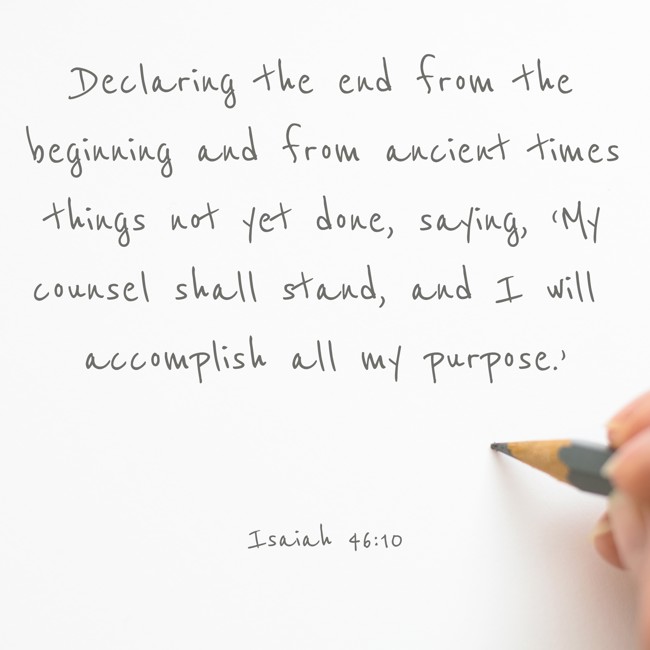 Declaring the end from the
beginning and from ancient times
things not yet done, saying, ‘My
counsel shall stand, and I will
accomplish all my purpose.’
Isaiah 46:10